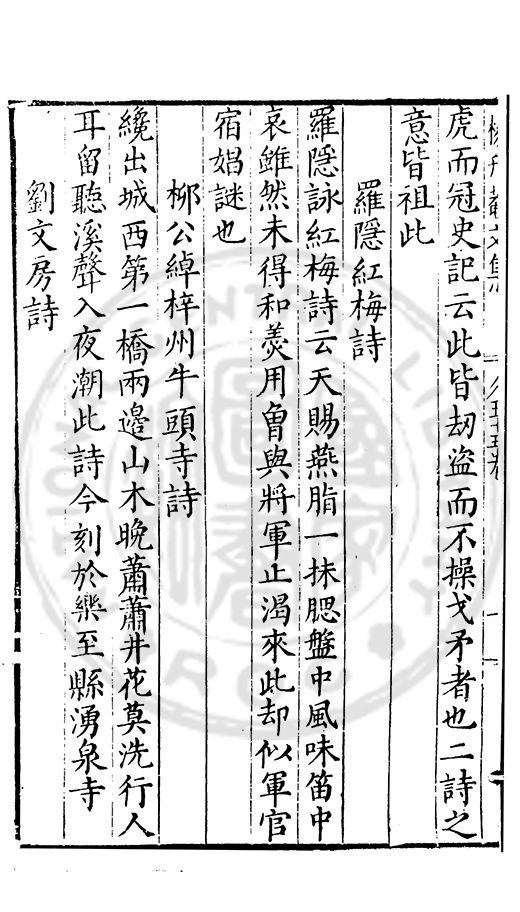 虎而冠史記云此皆刼盜而不操戈矛者也二詩之
意皆祖此
羅隱紅梅詩
羅隱詠紅梅詩云天賜燕脂一抹腮盤中風味笛中
哀雖然未得和羹用曾與將軍止渴來此却似軍官
宿娼謎也
柳公綽梓州牛頭寺詩
纔出城西第一橋兩邊山木晚蕭蕭井花莫洗行人
耳留聽溪聲入夜潮此詩今刻於樂至縣湧泉寺
劉文房詩